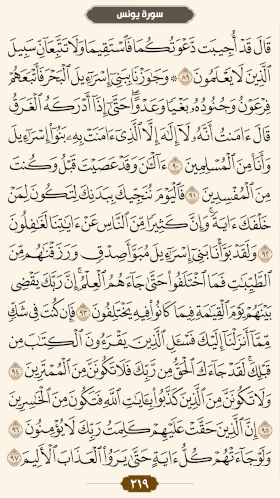 سورة يونس
قَالَ قَدْ أُجِيبَت دَّعْوَتُكُمَا فَٱسْتَقِيمَا وَلَا تَتَّبِعَآنِّ سَبِيلَ
ٱلَّذِينَ لَا يَعْلَمُونَ ٨٩ ۞ وَجَٰوَزْنَا بِبَنِىٓ إِسْرَٰٓءِيلَ ٱلْبَحْرَ فَأَتْبَعَهُمْ
فِرْعَوْنُ وَجُنُودُهُۥ بَغْيًا وَعَدْوًا ۖ حَتَّىٰٓ إِذَآ أَدْرَكَهُ ٱلْغَرَقُ
قَالَ ءَامَنتُ أَنَّهُۥ لَآ إِلَٰهَ إِلَّا ٱلَّذِىٓ ءَامَنَتْ بِهِۦ بَنُوٓا۟ إِسْرَٰٓءِيلَ
وَأَنَا۠ مِنَ ٱلْمُسْلِمِينَ ٩٠ ءَآلْـَٰٔنَ وَقَدْ عَصَيْتَ قَبْلُ وَكُنتَ
مِنَ ٱلْمُفْسِدِينَ ٩١ فَٱلْيَوْمَ نُنَجِّيكَ بِبَدَنِكَ لِتَكُونَ لِمَنْ
خَلْفَكَ ءَايَةً ۚ وَإِنَّ كَثِيرًا مِّنَ ٱلنَّاسِ عَنْ ءَايَٰتِنَا لَغَٰفِلُونَ
٩٢ وَلَقَدْ بَوَّأْنَا بَنِىٓ إِسْرَٰٓءِيلَ مُبَوَّأَ صِدْقٍ وَرَزَقْنَٰهُم مِّنَ
ٱلطَّيِّبَٰتِ فَمَا ٱخْتَلَفُوا۟ حَتَّىٰ جَآءَهُمُ ٱلْعِلْمُ ۚ إِنَّ رَبَّكَ يَقْضِى
بَيْنَهُمْ يَوْمَ ٱلْقِيَٰمَةِ فِيمَا كَانُوا۟ فِيهِ يَخْتَلِفُونَ ٩٣ فَإِن كُنتَ فِى شَكٍّ
مِّمَّآ أَنزَلْنَآ إِلَيْكَ فَسْـَٔلِ ٱلَّذِينَ يَقْرَءُونَ ٱلْكِتَٰبَ مِن
قَبْلِكَ ۚ لَقَدْ جَآءَكَ ٱلْحَقُّ مِن رَّبِّكَ فَلَا تَكُونَنَّ مِنَ ٱلْمُمْتَرِينَ ٩٤
وَلَا تَكُونَنَّ مِنَ ٱلَّذِينَ كَذَّبُوا۟ بِـَٔايَٰتِ ٱللَّهِ فَتَكُونَ مِنَ ٱلْخَٰسِرِينَ
٩٥ إِنَّ ٱلَّذِينَ حَقَّتْ عَلَيْهِمْ كَلِمَتُ رَبِّكَ لَا يُؤْمِنُونَ ٩٦
وَلَوْ جَآءَتْهُمْ كُلُّ ءَايَةٍ حَتَّىٰ يَرَوُا۟ ٱلْعَذَابَ ٱلْأَلِيمَ ٩٧
٢١٩